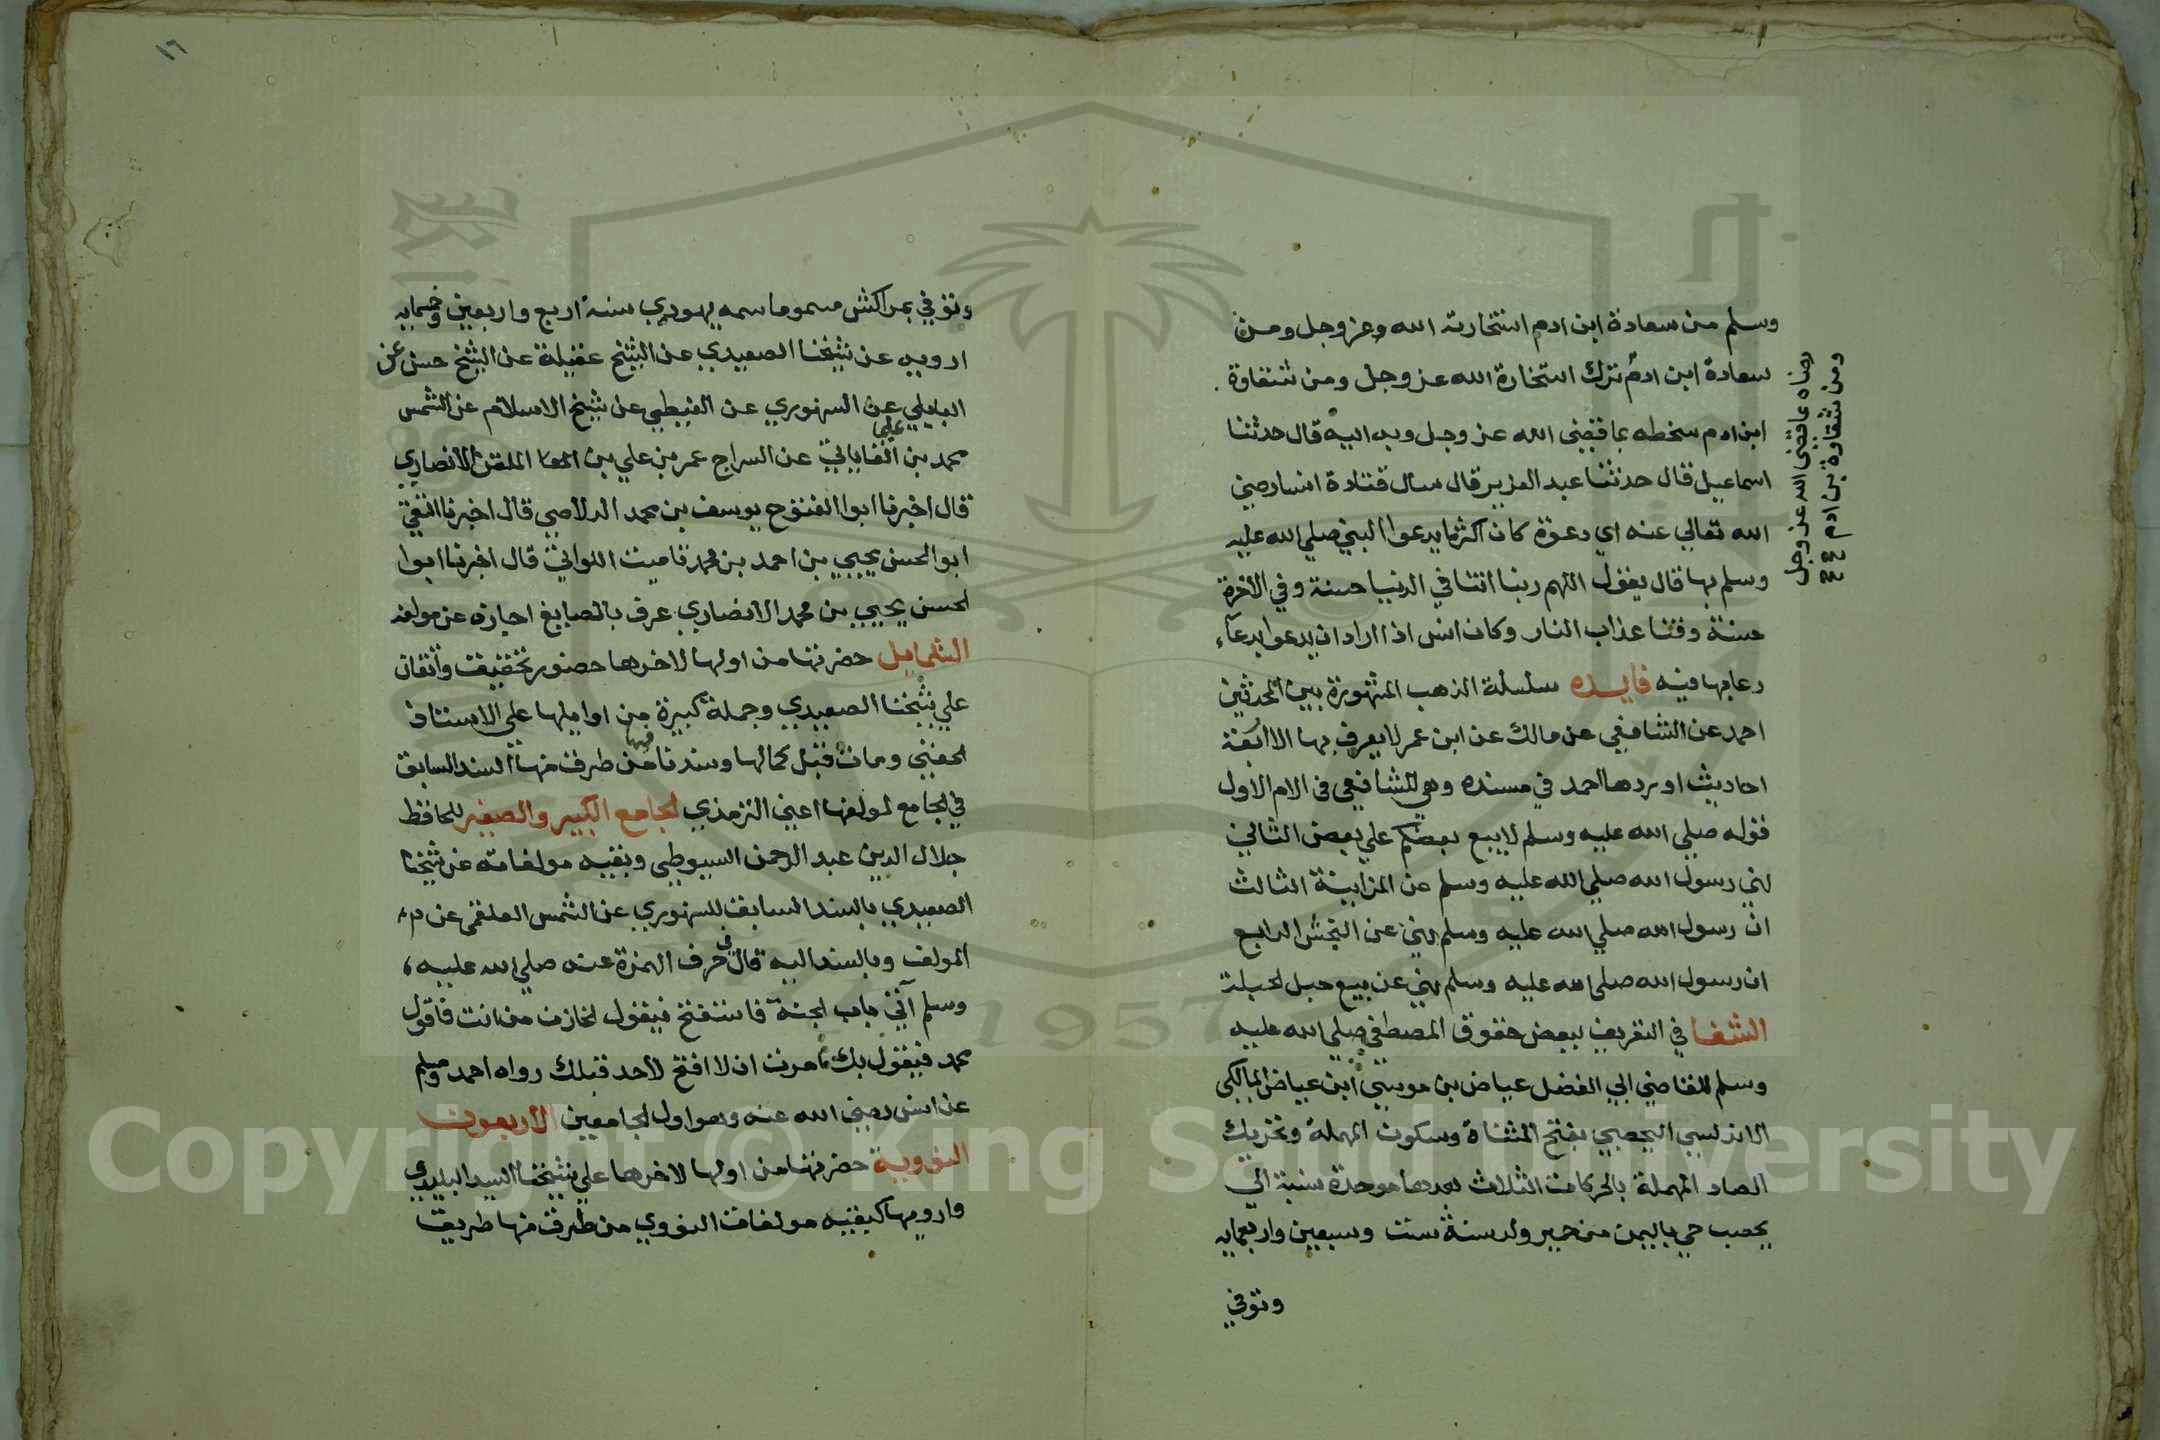 وسلم من سعادة ابن ادم استخارته الله وعز وجل ومن
سعادة ابن ادم ترك استخارة الله عز وجل ومن شقاوة
ابن ادم سخطه بما قضى الله عز وجل وبه اليه قال حدثنا
اسماعيل قال حدثنا عبد العزيز قال سال قتادة انسا رضي
الله تعالي عنه اي دعوة كان اكثر ما يدعوا النبي صلي الله عليه
وسلم بها قال يقول اللهم ربنا اتنا في الدنيا حسنة وفي الاخرة
حسنة وقنا عذاب النار وكان انس اذا اراد ان يدعوا بدعاء
دعا بها فيه فايده سلسلة الذهب المشهورة بين المحدثين
احمد عن الشافعي عن مالك عن ابن عمر لا يعرف بها الا اربعة
احاديث اوردها احمد في مسنده وهي للشافعي في الام الاول
قوله صلي الله عليه وسلم لا يبع بعضكم علي بعض الثاني
نهي رسول الله صلي الله عليه وسلم عن المزابنة الثالث
ان رسول الله صلي الله عليه وسلم نهي عن النجش الرابع
ان رسول الله صلي الله عليه وسلم نهي عن بيع حبل الحبلة
الشفا في التعريف ببعض حقوق المصطفي صلي الله عليه
وسلم للقاضي ابي الفضل عياض بن موسي ابن عياض المالكي
الاندلسي اليحصبي بفتح المثناة وسكون المهملة وتحريك
الصاد المهملة بالحركات الثلاث بعدها موحدة نسبة الي
يحصب حي باليمن من حمير ولد سنة ست وسبعين واربعمايه
وتوفي
رضاه بما قضى الله عز وجل
ومن شقاوة بن ادم صح صح
١٦
وتوفي بمراكش مسموما سمه يهودي سنة اربع واربعين وخمسمايه
ارويه عن شيخنا الصعيدي عن الشيخ عقيلة عن الشيخ حسن عن
البابلي عن السنهوري عن الغيطي عن شيخ الاسلام عن الشمس
محمد بن علي القاياتي عن السراج عمر بن علي بن الملقن الانصاري
قال اخبرنا ابوا الفتوح يوسف بن محمد الدلاصي قال اخبرنا التقي
ابو الحسن يحيي بن احمد بن محمد تاميت اللواتي قال اخبرنا ابوا
الحسن يحيي بن محمد الانصاري عرف بالصايغ اجازه عن مولفه
الشمايل حضرتها من اولها لاخرها حضور تحقيق واتقان
علي شيخنا الصعيدي وجملة كبيرة من اوايلها علي الاستاذ
الحفني ومات قبل كمالها وسندنا فيها من طرف منها السند السابق
في الجامع لمولفها اعني الترمذي الجامع الكبير والصغير للحافظ
جلال الدين عبد الرحمن السيوطي وبقية مولفاته عن شيخنا
الصعيدي بالسند السابق للسنهوري عن الشمس العلقمي عن
المولف وبالسند اليه قال في حرف الهمزة عنه صلي الله عليه
وسلم آتي باب الجنة فاستفتح فيقول الخازن من انت فاقول
محمد فيقول بك امرت ان لا افتح لاحد قبلك رواه احمد ومسلم
عن انس رضي الله عنه وهو اول الجامعين الاربعون
النووية حضرتها من اولها لاخرها علي شيخنا السيد البليدي
وارويها كبقية مولفات النووي من طرف منها طريق